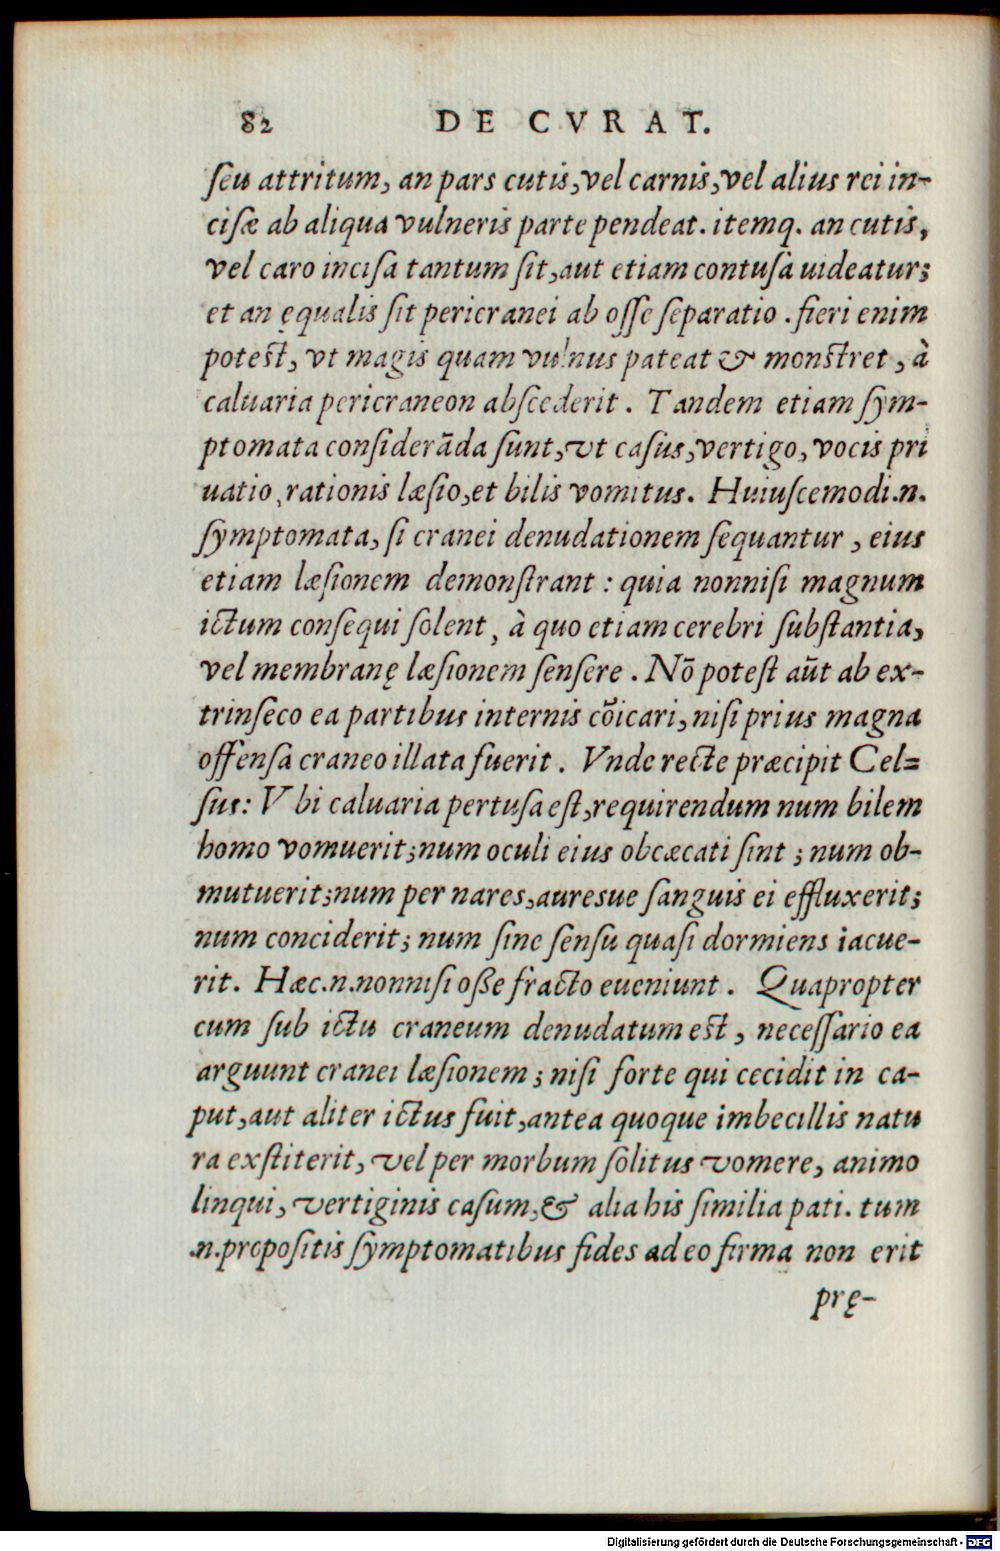 82 DE CVRAT.
ſeu attritum, an pars cutis, vel carnis, vel alius rei in-
ciſæ ab aliqua vulneris parte pendeat. itemq. an cutis,
vel caro inciſa tantum ſit, aut etiam contuſa uideatur;
et an ęqualis ſit pericranei ab oſſe ſeparatio. fieri enim
poteſt, vt magis quam vulnus pateat & monſtret, à
caluaria pericraneon abſcederit. Tandem etiam ſym-
ptomata conſiderāda ſunt, vt caſus, vertigo, vocis pri
uatio, rationis læſio, et bilis vomitus. Huiuſcemodi .n.
ſymptomata, ſi cranei denudationem ſequantur, eius
etiam læſionem demonſtrant: quia nonniſi magnum
ictum conſequi ſolent, à quo etiam cerebri ſubſtantia,
vel membranę læſionem ſenſere. Nō poteſt aũt ab ex-
trinſeco ea partibus internis cõicari, niſi prius magna
offenſa craneo illata fuerit. Vnde recte præcipit Cel=
ſus: Vbi caluaria pertuſa eſt, requirendum num bilem
homo vomuerit; num oculi eius obcæcati ſint; num ob-
mutuerit; num per nares, auresue ſanguis ei effluxerit;
num conciderit; num ſine ſenſu quaſi dormiens iacue-
rit. Hæc .n. nonniſi oſſe fracto eueniunt. Quapropter
cum ſub ictu craneum denudatum eſt, neceſſario ea
arguunt cranei læſionem; niſi forte qui cecidit in ca-
put, aut aliter ictus fuit, antea quoque imbecillis natu
ra exſtiterit, vel per morbum ſolitus vomere, animo
linqui, vertiginis caſum, & alia his ſimilia pati. tum
.n. propoſitis ſymptomatibus fides adeo firma non erit
prę-
Digitalisierung gefördert durch die Deutsche Forschungsgemeinschaft - DFG